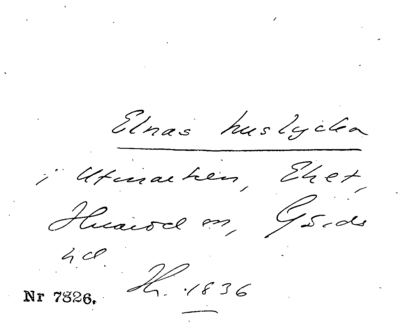 Elnas huslycka
i Utmarken, Eket,
Hvaröd sn, Gärds
hd.
Nr 7826. Hr. 1836